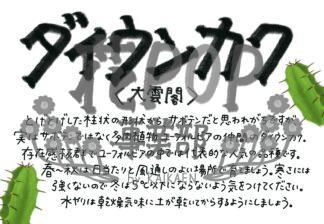 ダイウンカク
〈大雲閣〉
とげとげした柱状の形状からサボテンだと思われがちですが
実はサボテンではなく多肉植物ユーフォルビアの仲間のダイウンカク。
存在感抜群でユーフォルビアの中では代表的な人気のある種です。
春〜秋は日当たりと風通しのよい場所で育てましょう。寒さには
強くないので冬は5℃以下にならないよう気をつけてください。
水やりは乾燥気味に土が乾いてからするようにしましょう。
花POP
事業部
By KAIKAEN